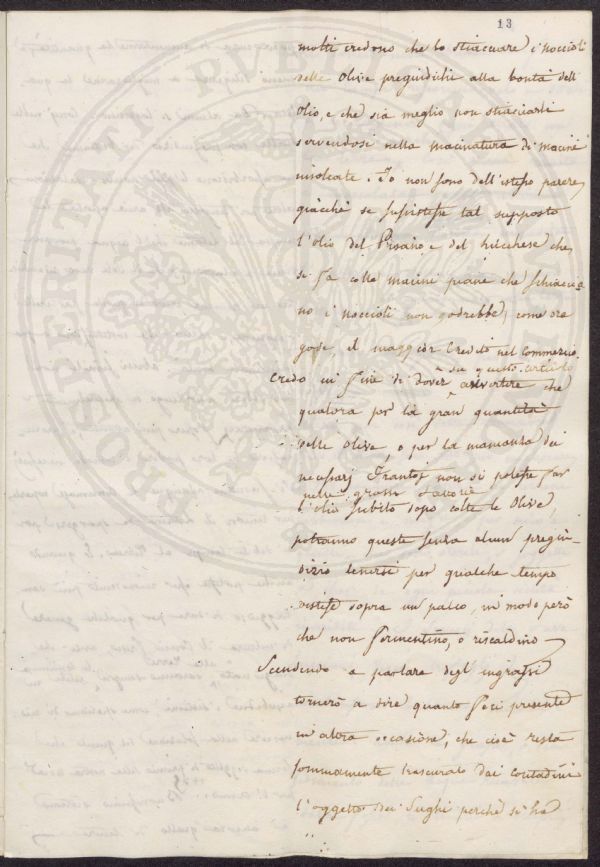 13
molti credono che lo stiacciare i noccioli
delle Olive pregiudichi alla bontà dell'
Olio, e che sia meglio non stiaciarli
servendosi nella macinatura di macine
Io non sono dell'istesso parere,
giacchè se sussistesse tal supposto
l'olio del Pisano, e del Lucchese che
si fa colle macini piane che schiaccia
no i noccioli non godrebbe, come ora
gode, il maggior Credito nel Commercio.
su questo articolo
Credo in fine di dover avvertire che
qualora per la gran quantità
delle Olive, o per la mancanza dei
necessarj Frantoj non si potesse far
nelle grosse Fattorie
l'olio subito dopo colte le Olive,
potranno queste senza alcun pregiu-
dizio tenersi per qualche tempo
distese sopra un palco, in modo però
che non fermentino, o riscaldino
Scendendo a parlare degl'ingrassi
tornerò a dire quanto feci presente
in altra occasione, che cioè resta
sommamente trascurato dai contadini
l'oggetto dei Sughi perchè si ha
PROSPERITATI PUBLICAE